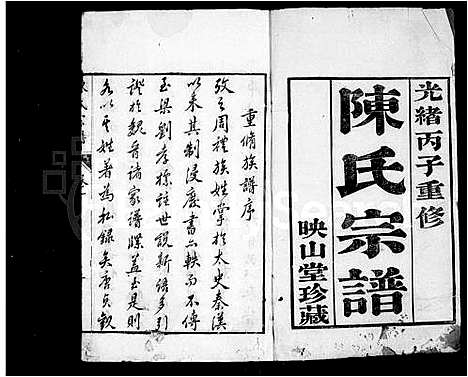 光緒丙子重修
陳氏宗譜
映山堂珍藏
重脩族譜序
攷之周禮族姓掌於太史秦漢
以来其制浸廢書亦軼而不傳
至梁劉孝標註世說新語多列
譜於魏晉諸家譜牒蓋至是則
各以其姓著為私錄矣唐貞觀